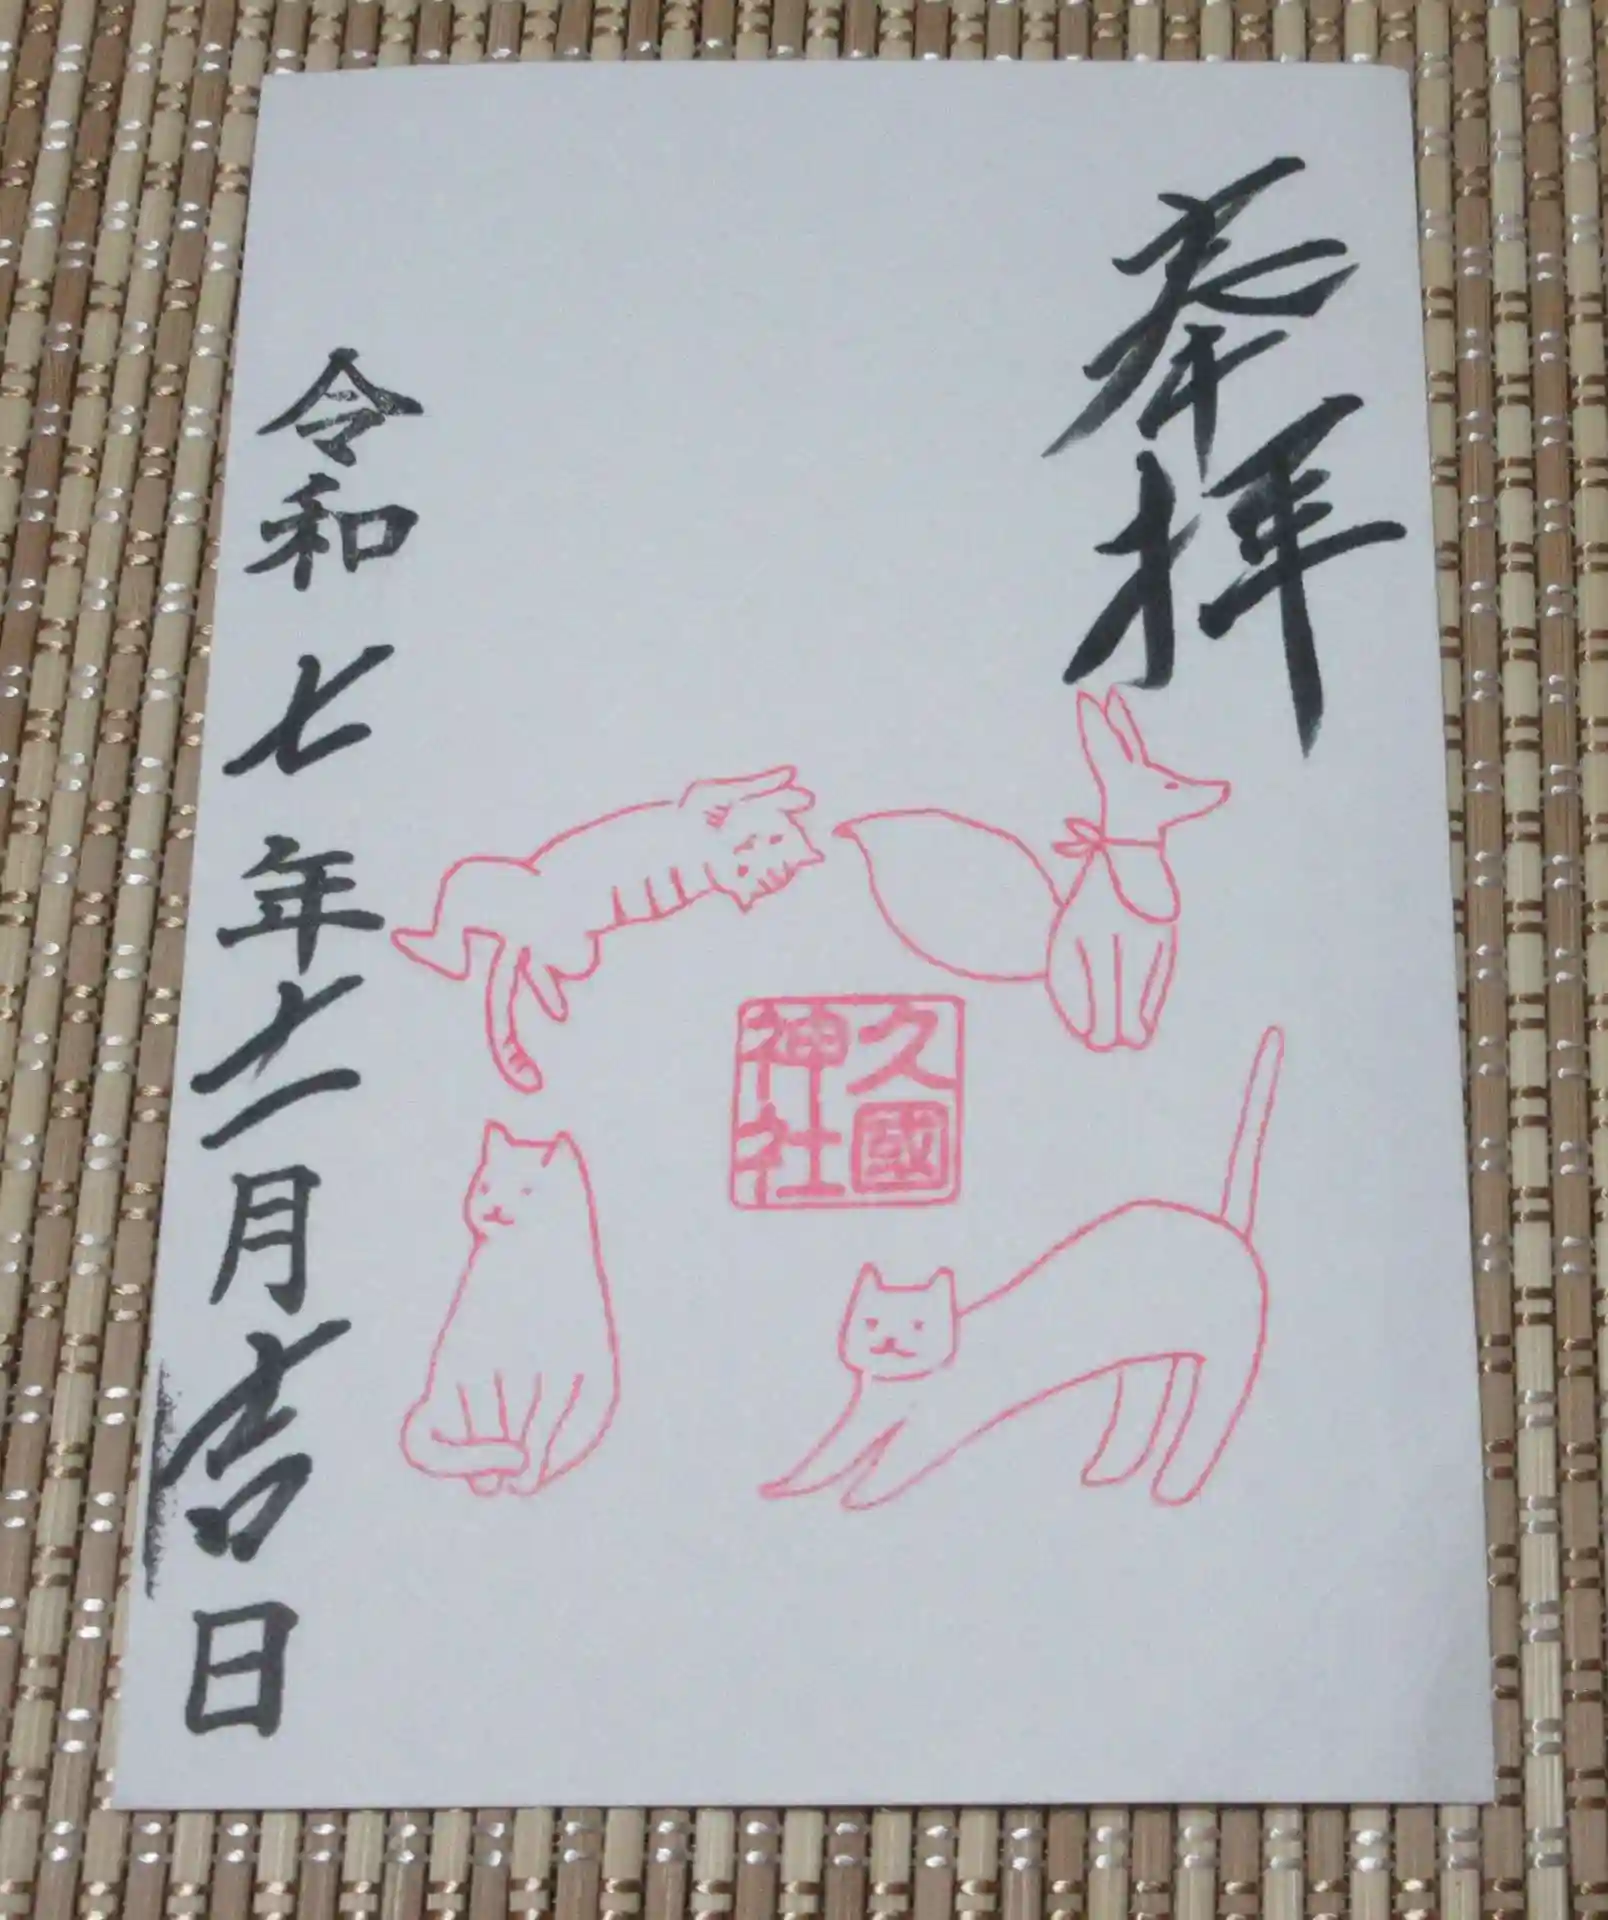 奉拝
久國
神社
令和七年十一月吉日